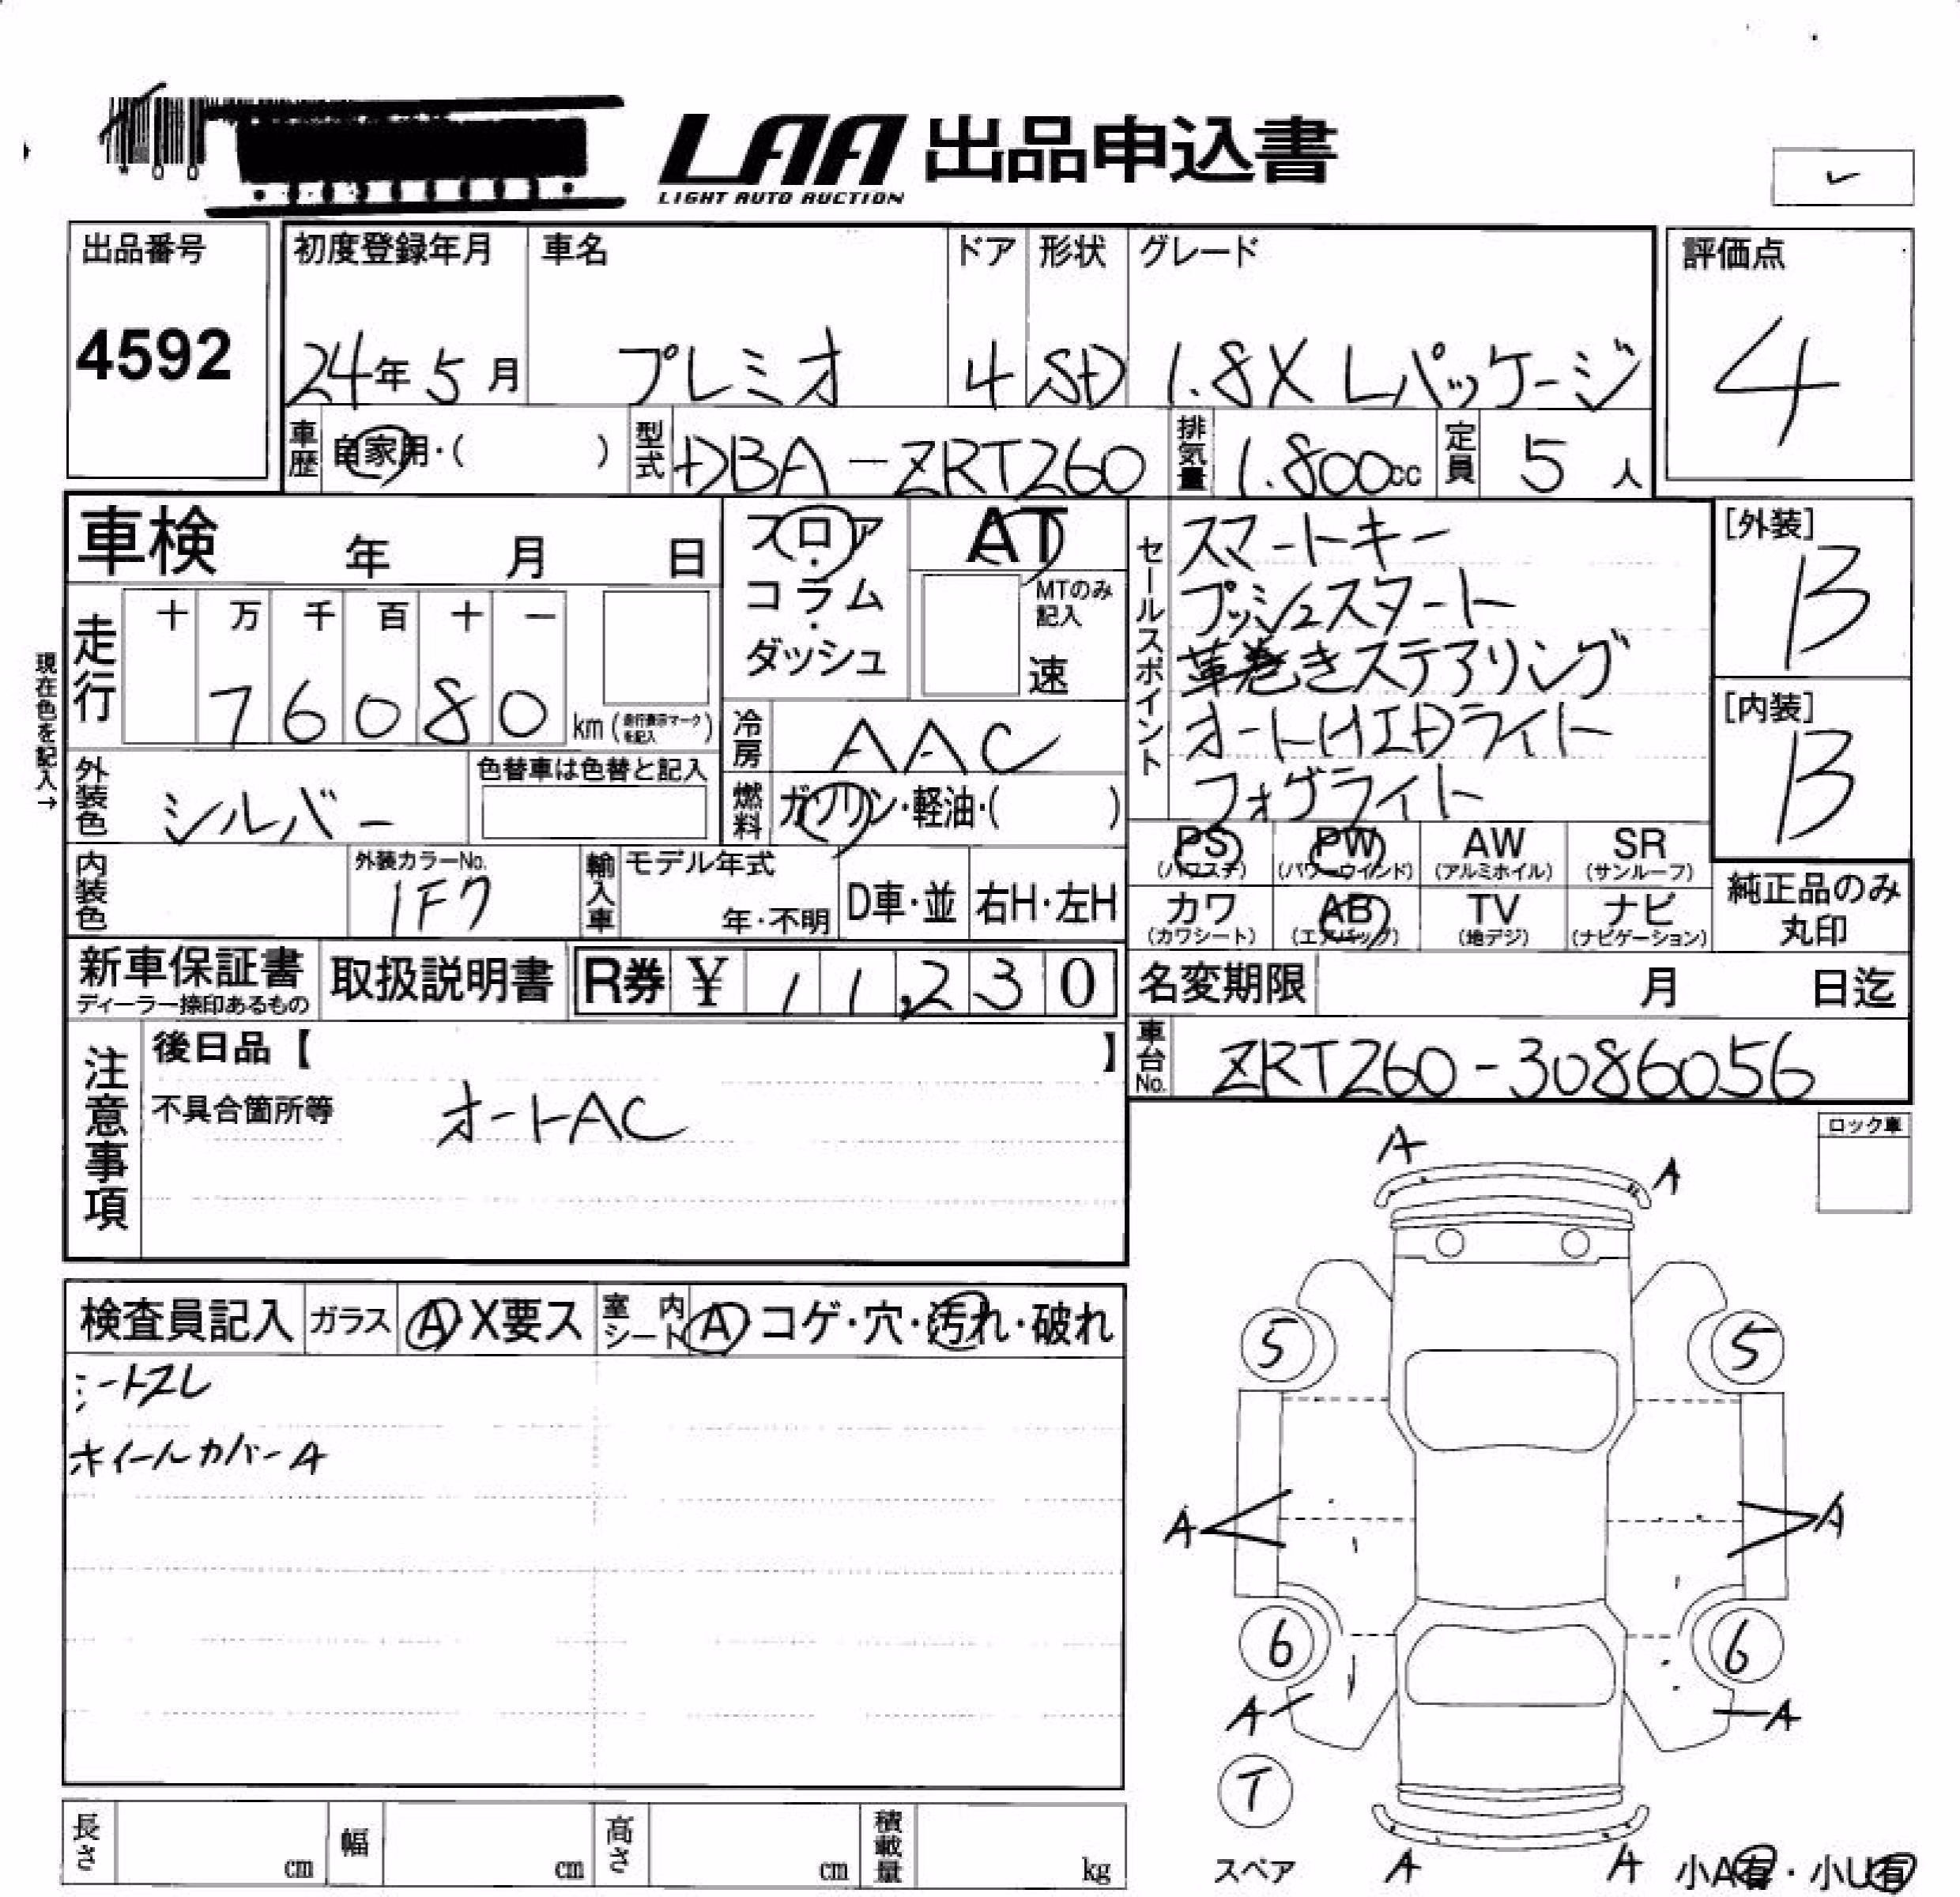 LAA 出品申込書
LIGHT AUTO AUCTION
出品番号
4592
初度登録年月
24年5月
車名
プレミオ
ドア
4
形状
SD
グレード
1.8X Lパッケージ
評価点
4
車歴 自家用・( )
型式 DBA-ZRT260
排気量 1.800cc
定員 5人
車検 年 月 日
フロア・コラム・ダッシュ
AT
MTのみ記入
速
セールスポイント
スマートキー
プッシュスタート
革巻きステアリング
オートHIDライト
フォグライト
[外装]
B
[内装]
B
現在色を記入→
走行
十 万 千 百 十 一
76080 km (走行表示マークを記入)
冷房 AAC
外装色 シルバー
色替車は色替と記入
燃料 ガソリン・軽油・( )
PS (パワステ)
PW (パワーウインド)
AW (アルミホイル)
SR (サンルーフ)
カワ (カワシート)
AB (エアバッグ)
TV (地デジ)
ナビ (ナビゲーション)
純正品のみ
丸印
内装色
外装カラーNo.
1F7
輸入車
モデル年式
年・不明
D車・並
右H・左H
新車保証書
ディーラー捺印あるもの
取扱説明書
R券 ¥ 11,230
名変期限 月 日迄
車台No. ZRT260-3086056
注意事項
後日品【 】
不具合箇所等 オートAC
ロック車
検査員記入
ガラス A X要ス
室内シート A コゲ・穴・汚れ・破れ
シートスレ
ホイールカバーA
A
A
5
5
A
A
6
6
A
A
T
スペア
A
A
小A有・小U有
長さ cm
幅 cm
高さ cm
積載量 kg